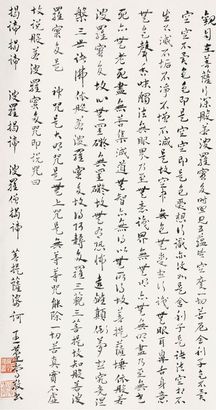 觀自在菩薩行深般若波羅蜜多時照見五蘊皆空度一切苦厄舍利子色不異
空空不異色色即是空空即是色受想行識亦復如是舍利子是諸法空相不
生不滅不垢不淨不增不減是故空中無色無受想行識無眼耳鼻舌身意
無色聲香味觸法無眼界乃至無意識界無無明亦無無明盡乃至無老
死亦無老死盡無苦集滅道無智亦無得以無所得故菩提薩埵依般若
波羅蜜多故心無罣礙無罣礙故無有恐怖遠離顛倒夢想究竟涅
槃三世諸佛依般若波羅蜜多故得阿耨多羅三藐三菩提故知般若波
羅蜜多是大神咒是大明咒是無上咒是無等等咒能除一切苦真實不虛
故說般若波羅蜜多咒即說咒曰
揭諦揭諦 波羅揭諦 波羅僧揭諦 菩提薩婆訶